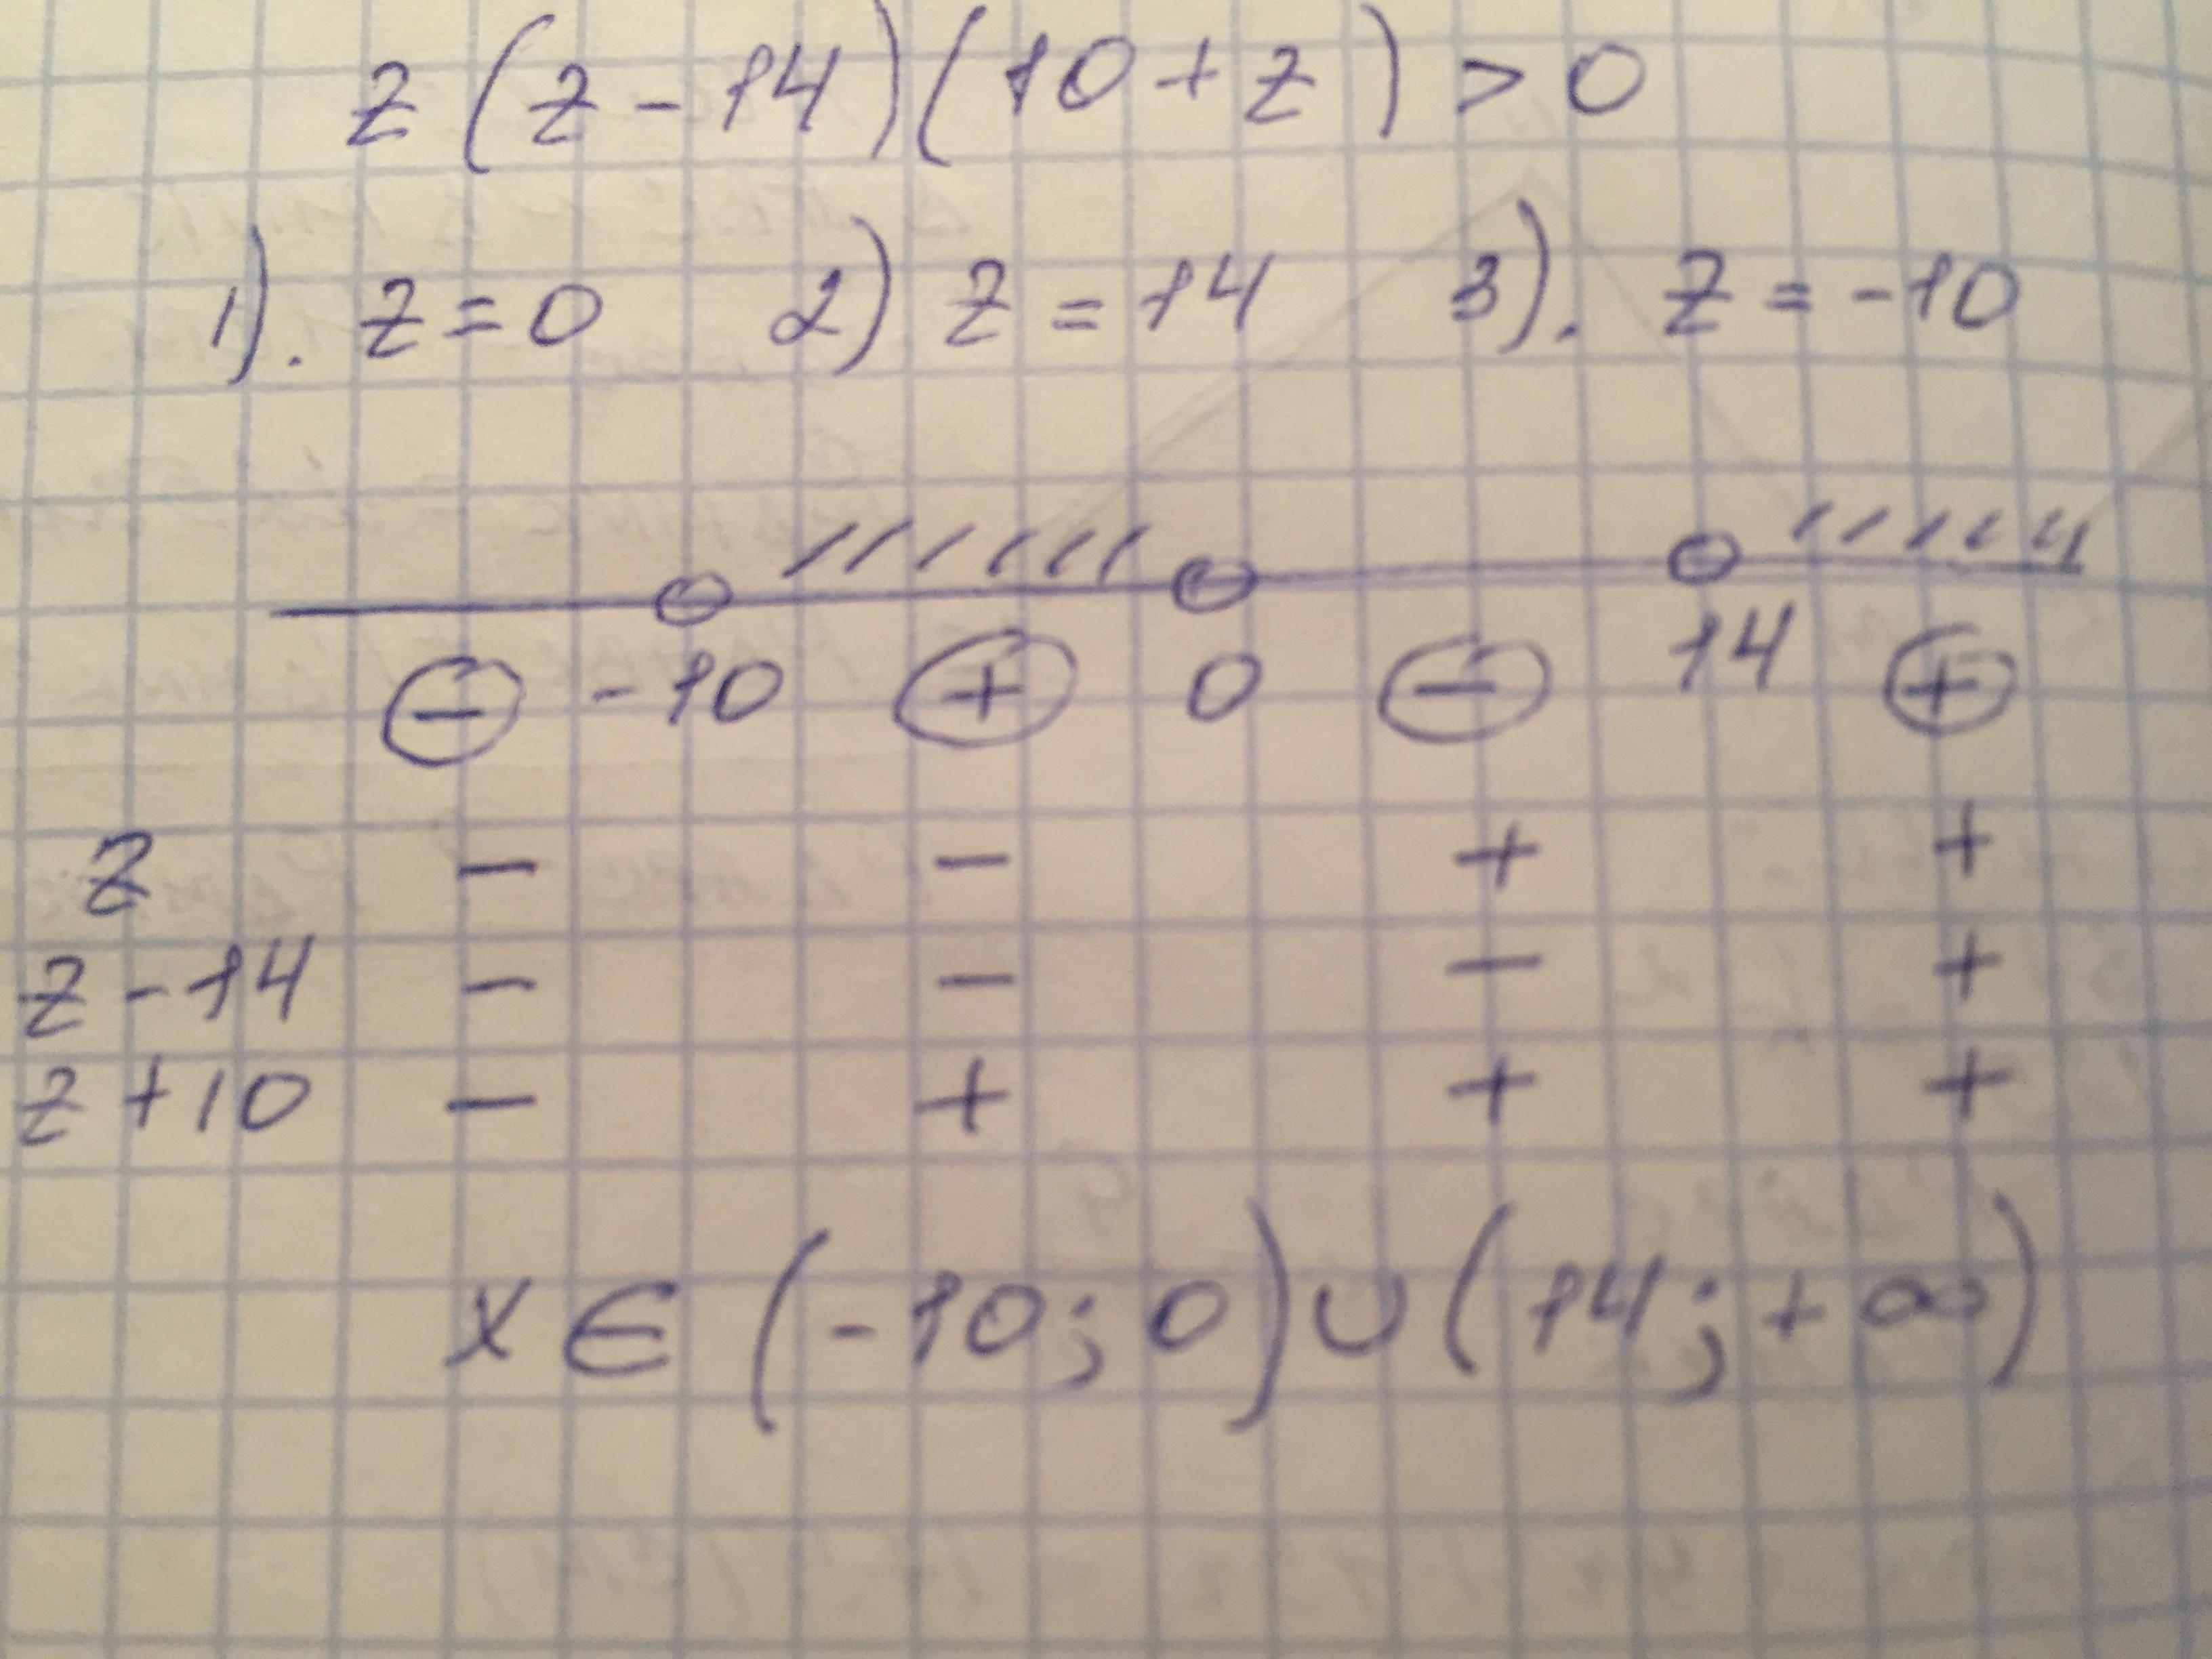 z(z-14)(10+z)>0
1). z=0 2) z=14 3). z=-10
⊖ -10 ⊕ 0 ⊖ 14 ⊕
z - - + +
z-14 - - - +
z+10 - + + +
x∈(-10;0)∪(14;+∞)